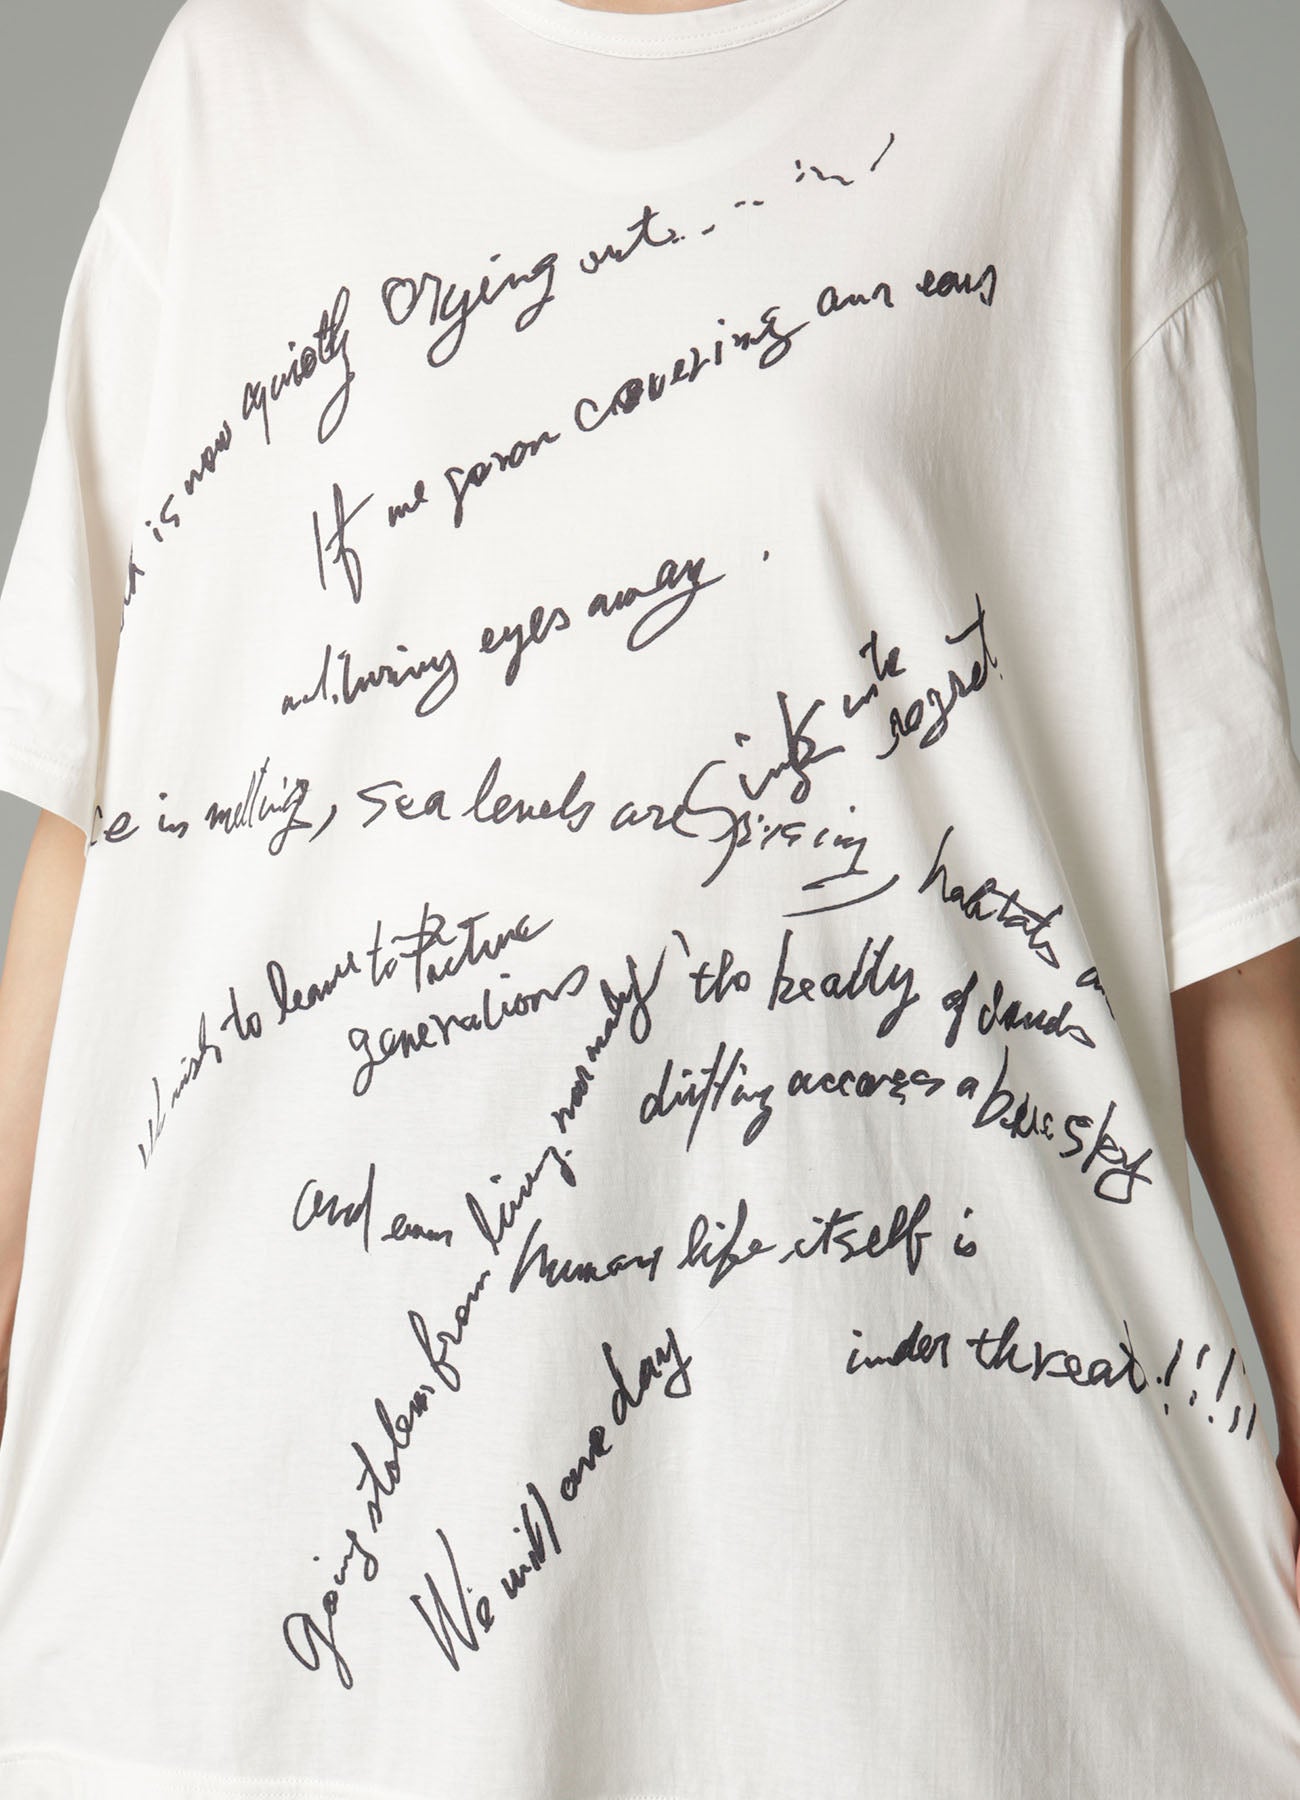 is now quietly crying out...
If we covering our ears
and turning eyes away.
ice is melting, sea levels are rising
sink into
regret
habitats
I wish to leave to future
generations
the beauty of clouds
drifting across a blue sky
and even living normally
human life itself is
under threat!!!!
going stolen from
We will one day